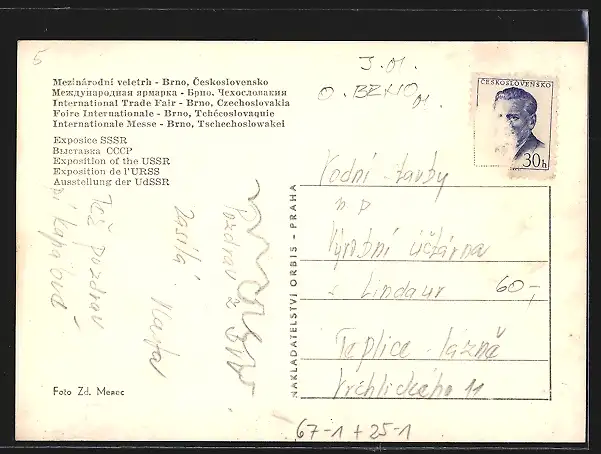 5
J. 01.
O. BRNO 01.
Mezinárodní veletrh - Brno, Československo
Международная ярмарка - Брно, Чехословакия
International Trade Fair - Brno, Czechoslovakia
Foire Internationale - Brno, Tchécoslovaquie
Internationale Messe - Brno, Tschechoslowakei
Exposice SSSR
Выставка СССР
Exposition of the USSR
Exposition de l'URSS
Ausstellung der UdSSR
ČESKOSLOVENSKO
30h
Pozdrav z Brna
zasílá
Též pozdrav
NAKLADATELSTVÍ ORBIS - PRAHA
Vodní stavby
n p
Výrobní účtárna
s. Lindaur 60,-
Teplice - lázně
Vrchlického 11
Foto Zd. Menec
67-1 + 25-1